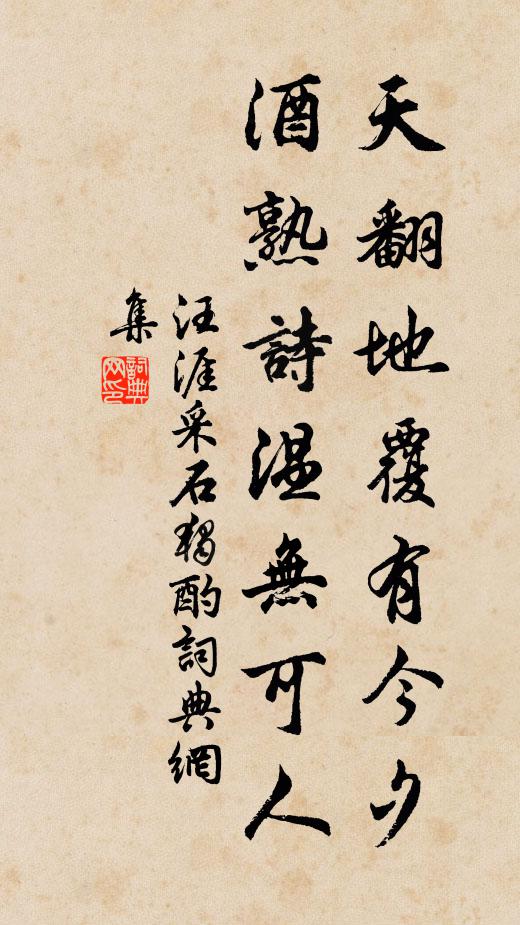 天翻地覆有今夕
酒熟詩温無可人
汪涯采石獨酌詞典網
集
詞典網印